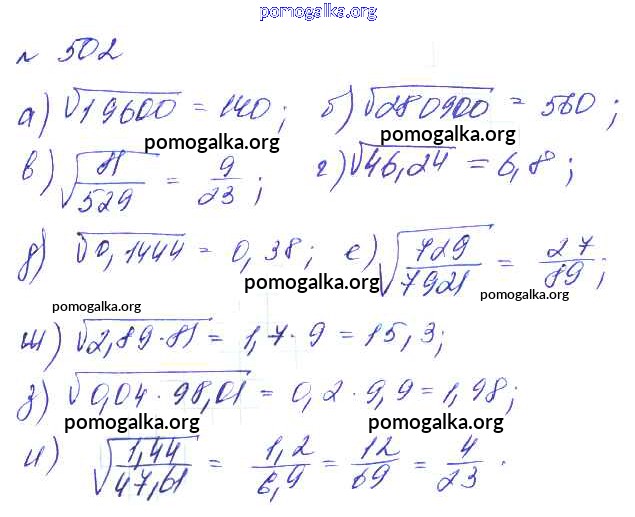 pomogalka.org
№ 502
а) √19600 = 140; б) √280900 = 530;
pomogalka.org pomogalka.org
в) √(81/529) = 9/23; г) √46,24 = 6,8;
д) √0,1444 = 0,38; е) √(729/7921) = 27/89;
pomogalka.org
pomogalka.org pomogalka.org
ж) √2,89·81 = 1,7·9 = 15,3;
з) √0,04·98,01 = 0,2·9,9 = 1,98;
pomogalka.org pomogalka.org
и) √(1,44/47,61) = 1,2/6,9 = 12/69 = 4/23.